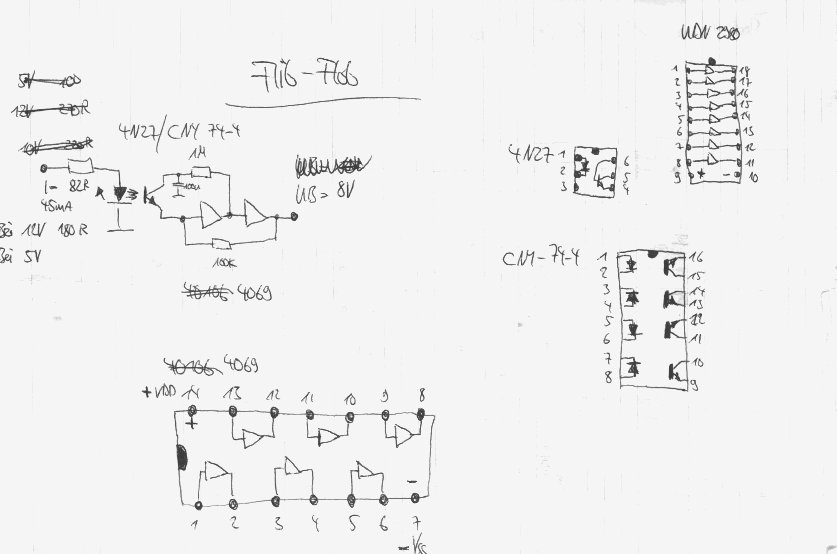 Flip-Flop
UDN 2980
5V 100
12V 220R
10V 220R
4N27/CNY 74-4
1M
100u
I= 82R
45mA
Bei 12V 180R
Bei 5V
UB= 8V
100K
40106 4069
4N27
1 6
2 5
3 4
1 18
2 17
3 16
4 15
5 14
6 13
7 12
8 11
9 + - 10
CNY-74-4
1 16
2 15
3 14
4 13
5 12
6 11
7 10
8 9
40106 4069
+VDD 14 13 12 11 10 9 8
+
-
1 2 3 4 5 6 7
-VSS